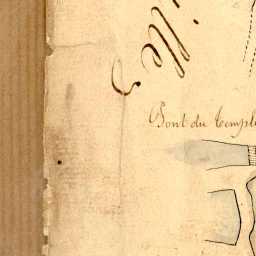 ille
Pont du temple